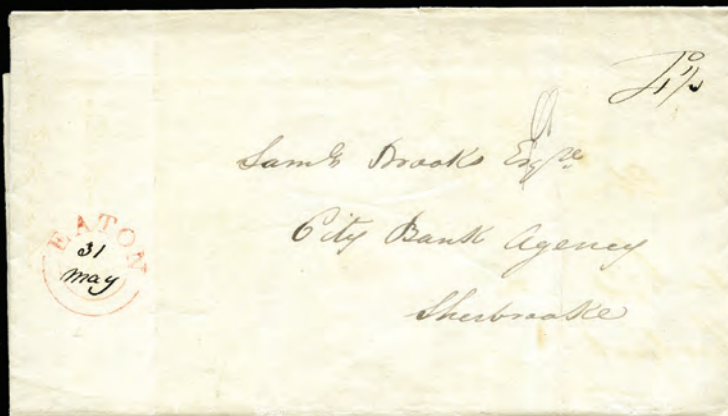 Saml Brooks Esqre
City Bank Agency
Sherbrooke
EATON
31
May